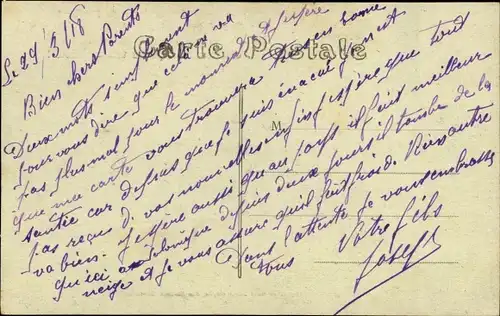 Carte Postale
Le 29/3/18
Biens chers Parents
Deux mots seulement
pour vous dire que cela ne va
pas plus mal pour le moment j'espère
que ma carte vous trouvera de bonne
santée car depuis que je suis évacué je n'ait
pas reçue de vos nouvelles enfin j'espère que tout
va bien. J'espère aussi qu'au pays il fait meilleur
qu'ici a depuis deux jours il tombe de la
neige et je vous assure qu'il fait froid. Rien autre
Dans l'attente Je vous embrasse
tous
Votre fils
Joseph